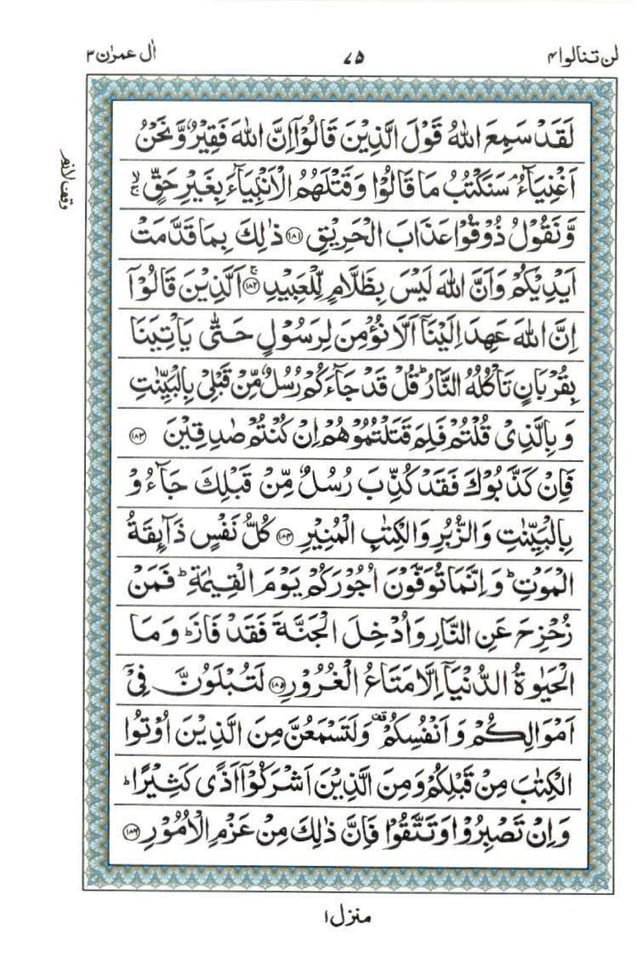 لن تنالوا ۴ ۷۵ اٰل عمرٰن ۳
لَقَدْ سَمِعَ اللّٰهُ قَوْلَ الَّذِيْنَ قَالُوْۤا اِنَّ اللّٰهَ فَقِيْرٌ وَّنَحْنُ
اَغْنِيَآءُ ۘ سَنَكْتُبُ مَا قَالُوْا وَقَتْلَهُمُ الْاَنْۢبِيَآءَ بِغَيْرِ حَقٍّ ۙ
وَّنَقُوْلُ ذُوْقُوْا عَذَابَ الْحَرِيْقِ ﴿۱۸۱﴾ ذٰلِكَ بِمَا قَدَّمَتْ
اَيْدِيْكُمْ وَاَنَّ اللّٰهَ لَيْسَ بِظَلَّامٍ لِّلْعَبِيْدِ ۚ ﴿۱۸۲﴾ اَلَّذِيْنَ قَالُوْۤا
اِنَّ اللّٰهَ عَهِدَ اِلَيْنَاۤ اَلَّا نُؤْمِنَ لِرَسُوْلٍ حَتّٰى يَاْتِيَنَا
بِقُرْبَانٍ تَاْكُلُهُ النَّارُ ؕ قُلْ قَدْ جَآءَكُمْ رُسُلٌ مِّنْ قَبْلِىْ بِالْبَيِّنٰتِ
وَبِالَّذِىْ قُلْتُمْ فَلِمَ قَتَلْتُمُوْهُمْ اِنْ كُنْتُمْ صٰدِقِيْنَ ﴿۱۸۳﴾
فَاِنْ كَذَّبُوْكَ فَقَدْ كُذِّبَ رُسُلٌ مِّنْ قَبْلِكَ جَآءُوْ
بِالْبَيِّنٰتِ وَالزُّبُرِ وَالْكِتٰبِ الْمُنِيْرِ ﴿۱۸۴﴾ كُلُّ نَفْسٍ ذَآئِقَةُ
الْمَوْتِ ؕ وَاِنَّمَا تُوَفَّوْنَ اُجُوْرَكُمْ يَوْمَ الْقِيٰمَةِ ؕ فَمَنْ
زُحْزِحَ عَنِ النَّارِ وَاُدْخِلَ الْجَنَّةَ فَقَدْ فَازَ ؕ وَمَا
الْحَيٰوةُ الدُّنْيَاۤ اِلَّا مَتَاعُ الْغُرُوْرِ ﴿۱۸۵﴾ لَتُبْلَوُنَّ فِىْۤ
اَمْوَالِكُمْ وَاَنْفُسِكُمْ ۟ وَلَتَسْمَعُنَّ مِنَ الَّذِيْنَ اُوْتُوا
الْكِتٰبَ مِنْ قَبْلِكُمْ وَمِنَ الَّذِيْنَ اَشْرَكُوْۤا اَذًى كَثِيْرًا ؕ
وَاِنْ تَصْبِرُوْا وَتَتَّقُوْا فَاِنَّ ذٰلِكَ مِنْ عَزْمِ الْاُمُوْرِ ﴿۱۸۶﴾
وقف لازم
منزل ۱